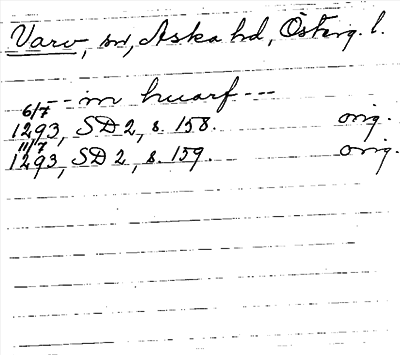 Varv, sn, Aska hd, Österg. l.
-- in huarf ---
6/7
1293, SD 2, s. 158. orig.
11/7
1293, SD 2, s. 159. orig.